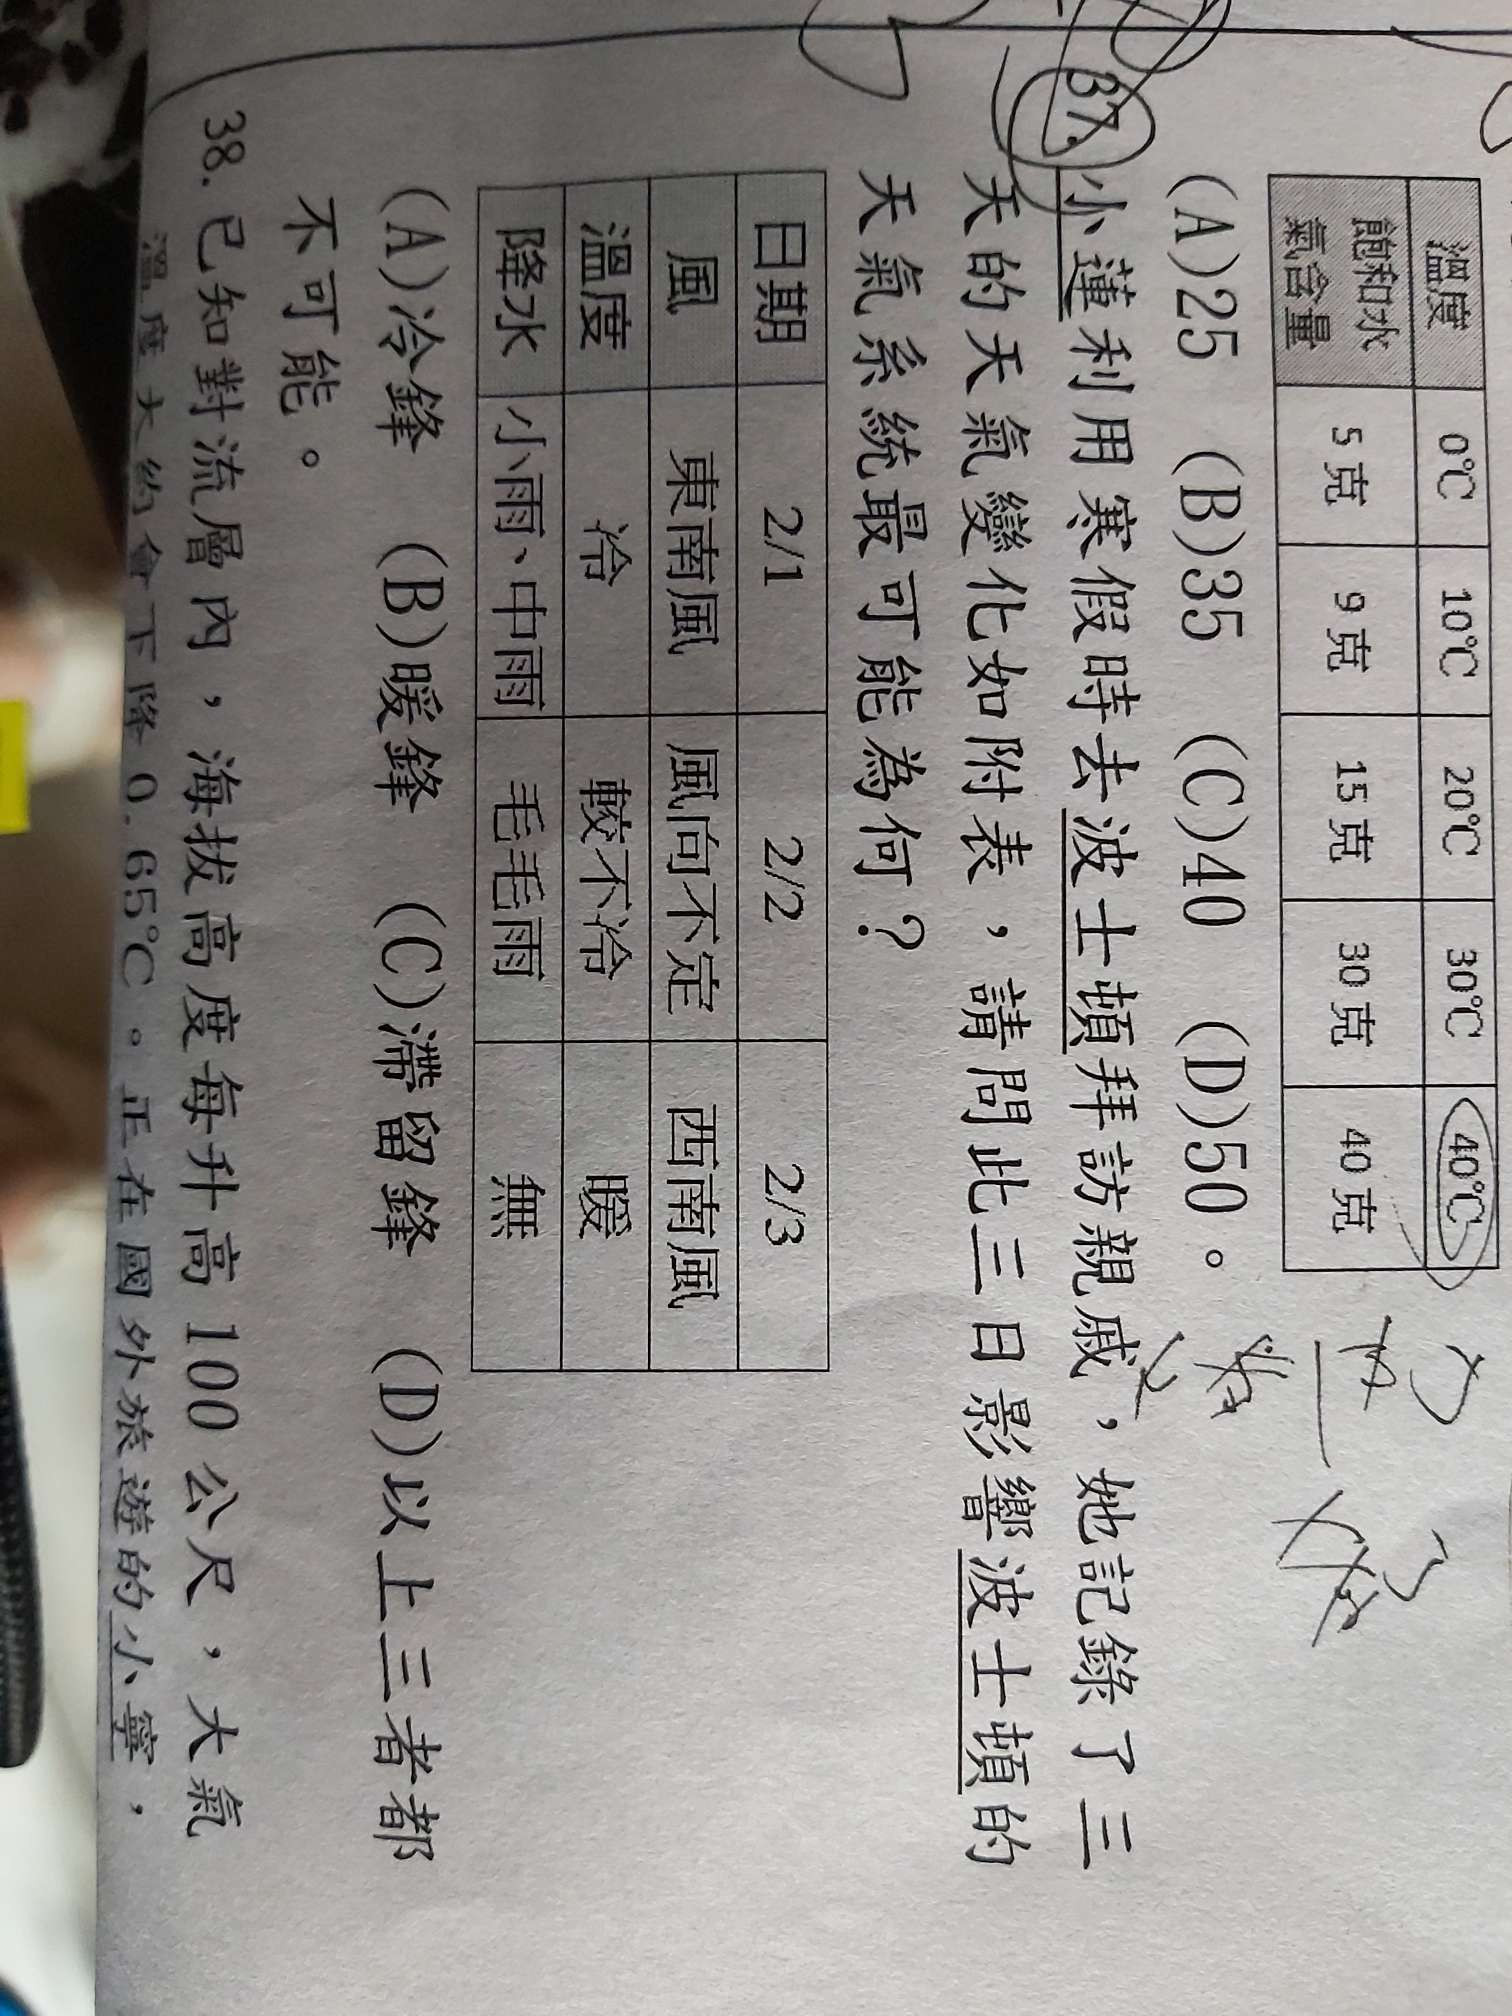 溫度 0℃ 10℃ 20℃ 30℃ 40℃
飽和水氣含量 5克 9克 15克 30克 40克
(A)25 (B)35 (C)40 (D)50。
37. 小蓮利用寒假時去波士頓拜訪親戚，她記錄了三
天的天氣變化如附表，請問此三日影響波士頓的
天氣系統最可能為何？
日期 2/1 2/2 2/3
風 東南風 風向不定 西南風
溫度 冷 較不冷 暖
降水 小雨、中雨 毛毛雨 無
(A)冷鋒 (B)暖鋒 (C)滯留鋒 (D)以上三者都
不可能。
38. 已知對流層內，海拔高度每升高100公尺，大氣
溫度大約會下降0.65℃。正在國外旅遊的小寧，